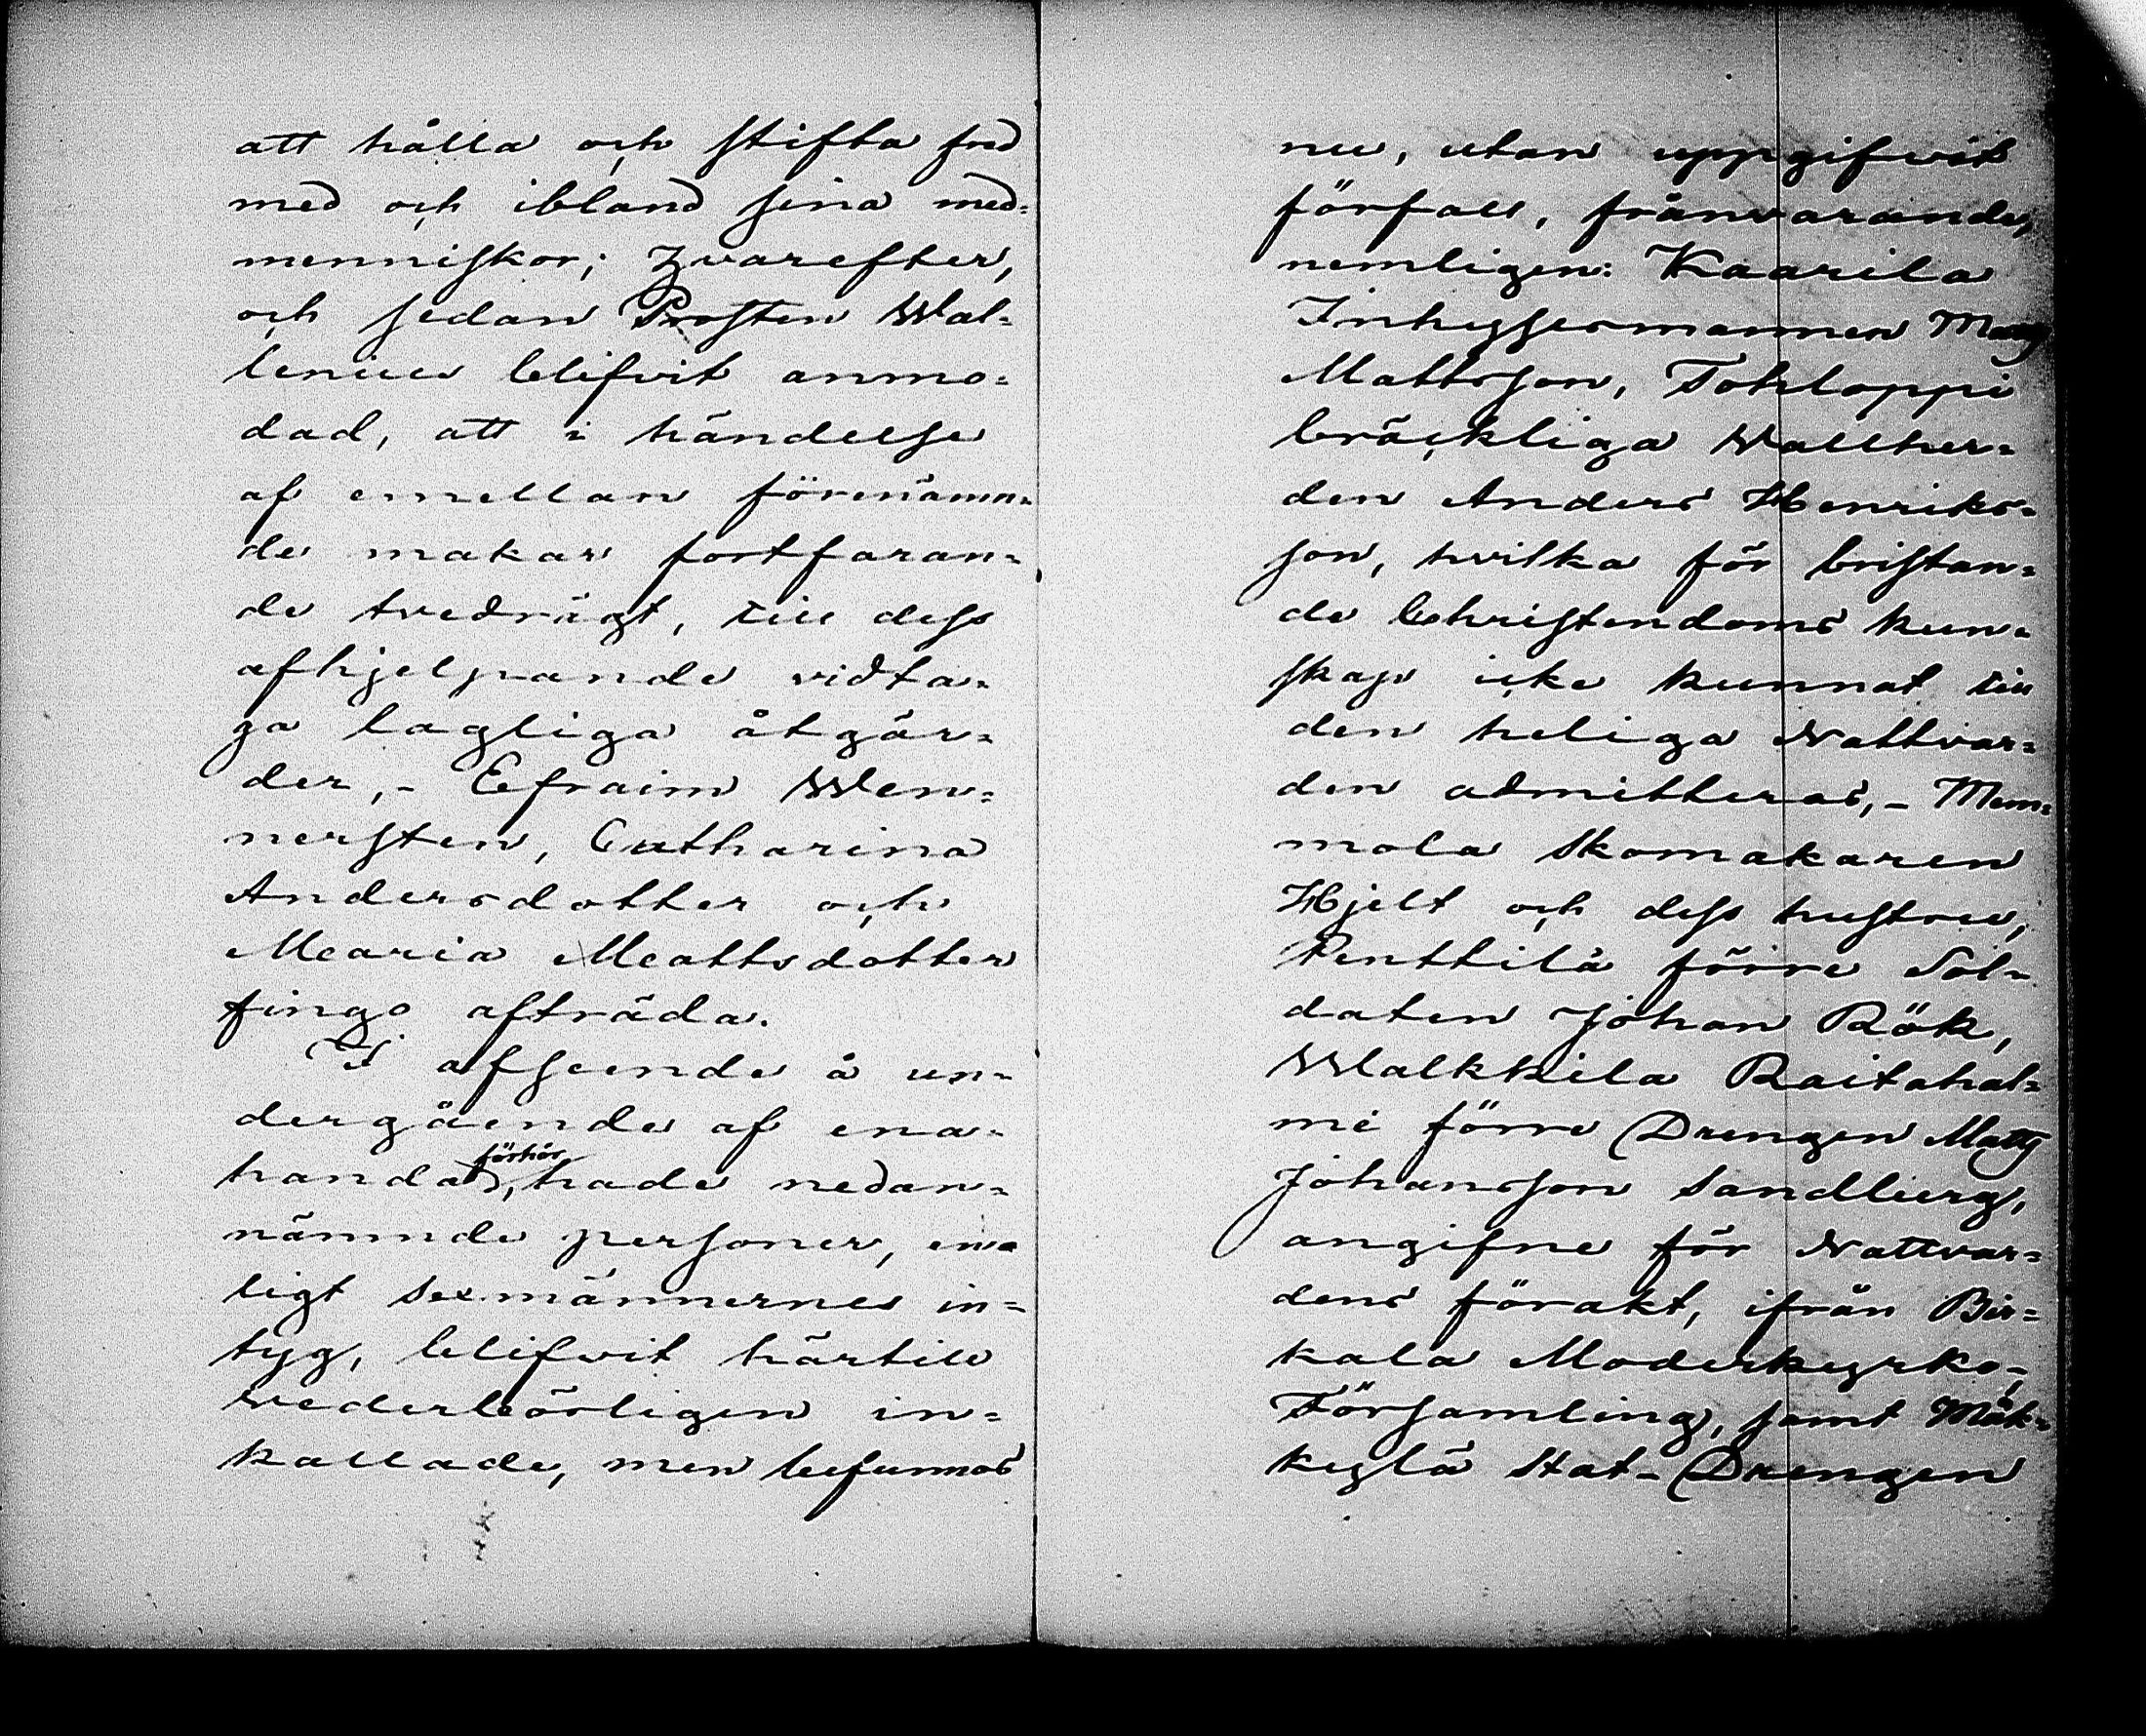 att hålla och stifta fred
med och ibland sina med=
menniskor; Hvarefter,
och sedan Prosten Wal=
lenius blifvit anmo=
dad, att i händelse
af emellan förenämn=
de makar fortfaran=
de tvedrägt, till dess
afhjelpande vidta=
ga lagliga åtgär=
der,- Efraim Wen=
nersten, Catharina
Andersdotter och
Maria Mattsdotter
fingo afträda.
I afseende å un=
dergående af ena=
handa förhör, hade nedan=
nämnde personer, en=
ligt sexmännernes in=
tyg, blifvit härtill
vederbörligen in=
kallade, men befunnos
nu, utan uppgifvit
förfall, frånvarande,
nemligen: Kaarila
Inhysesmannen Matts
Mattsson, Tohloppi
bräckliga Wallher=
den Anders Henriks=
son, hvilka för bristan=
de Christendoms kun=
skap icke kunnat till
den heliga Nattvar=
den admitteras,- Mem=
mola Skomakaren
Hjelt och dess hustru,
Penttilä förre Sol=
daten Johan Rök,
Walkkila Raitahal=
mi förre Drengen Matts
Johansson Sandberg,
angifne för Nattvar=
dens förakt, ifrån Bir=
kala Moderkyrko=
Församling, samt Mäk=
kylä Stat-Drengen